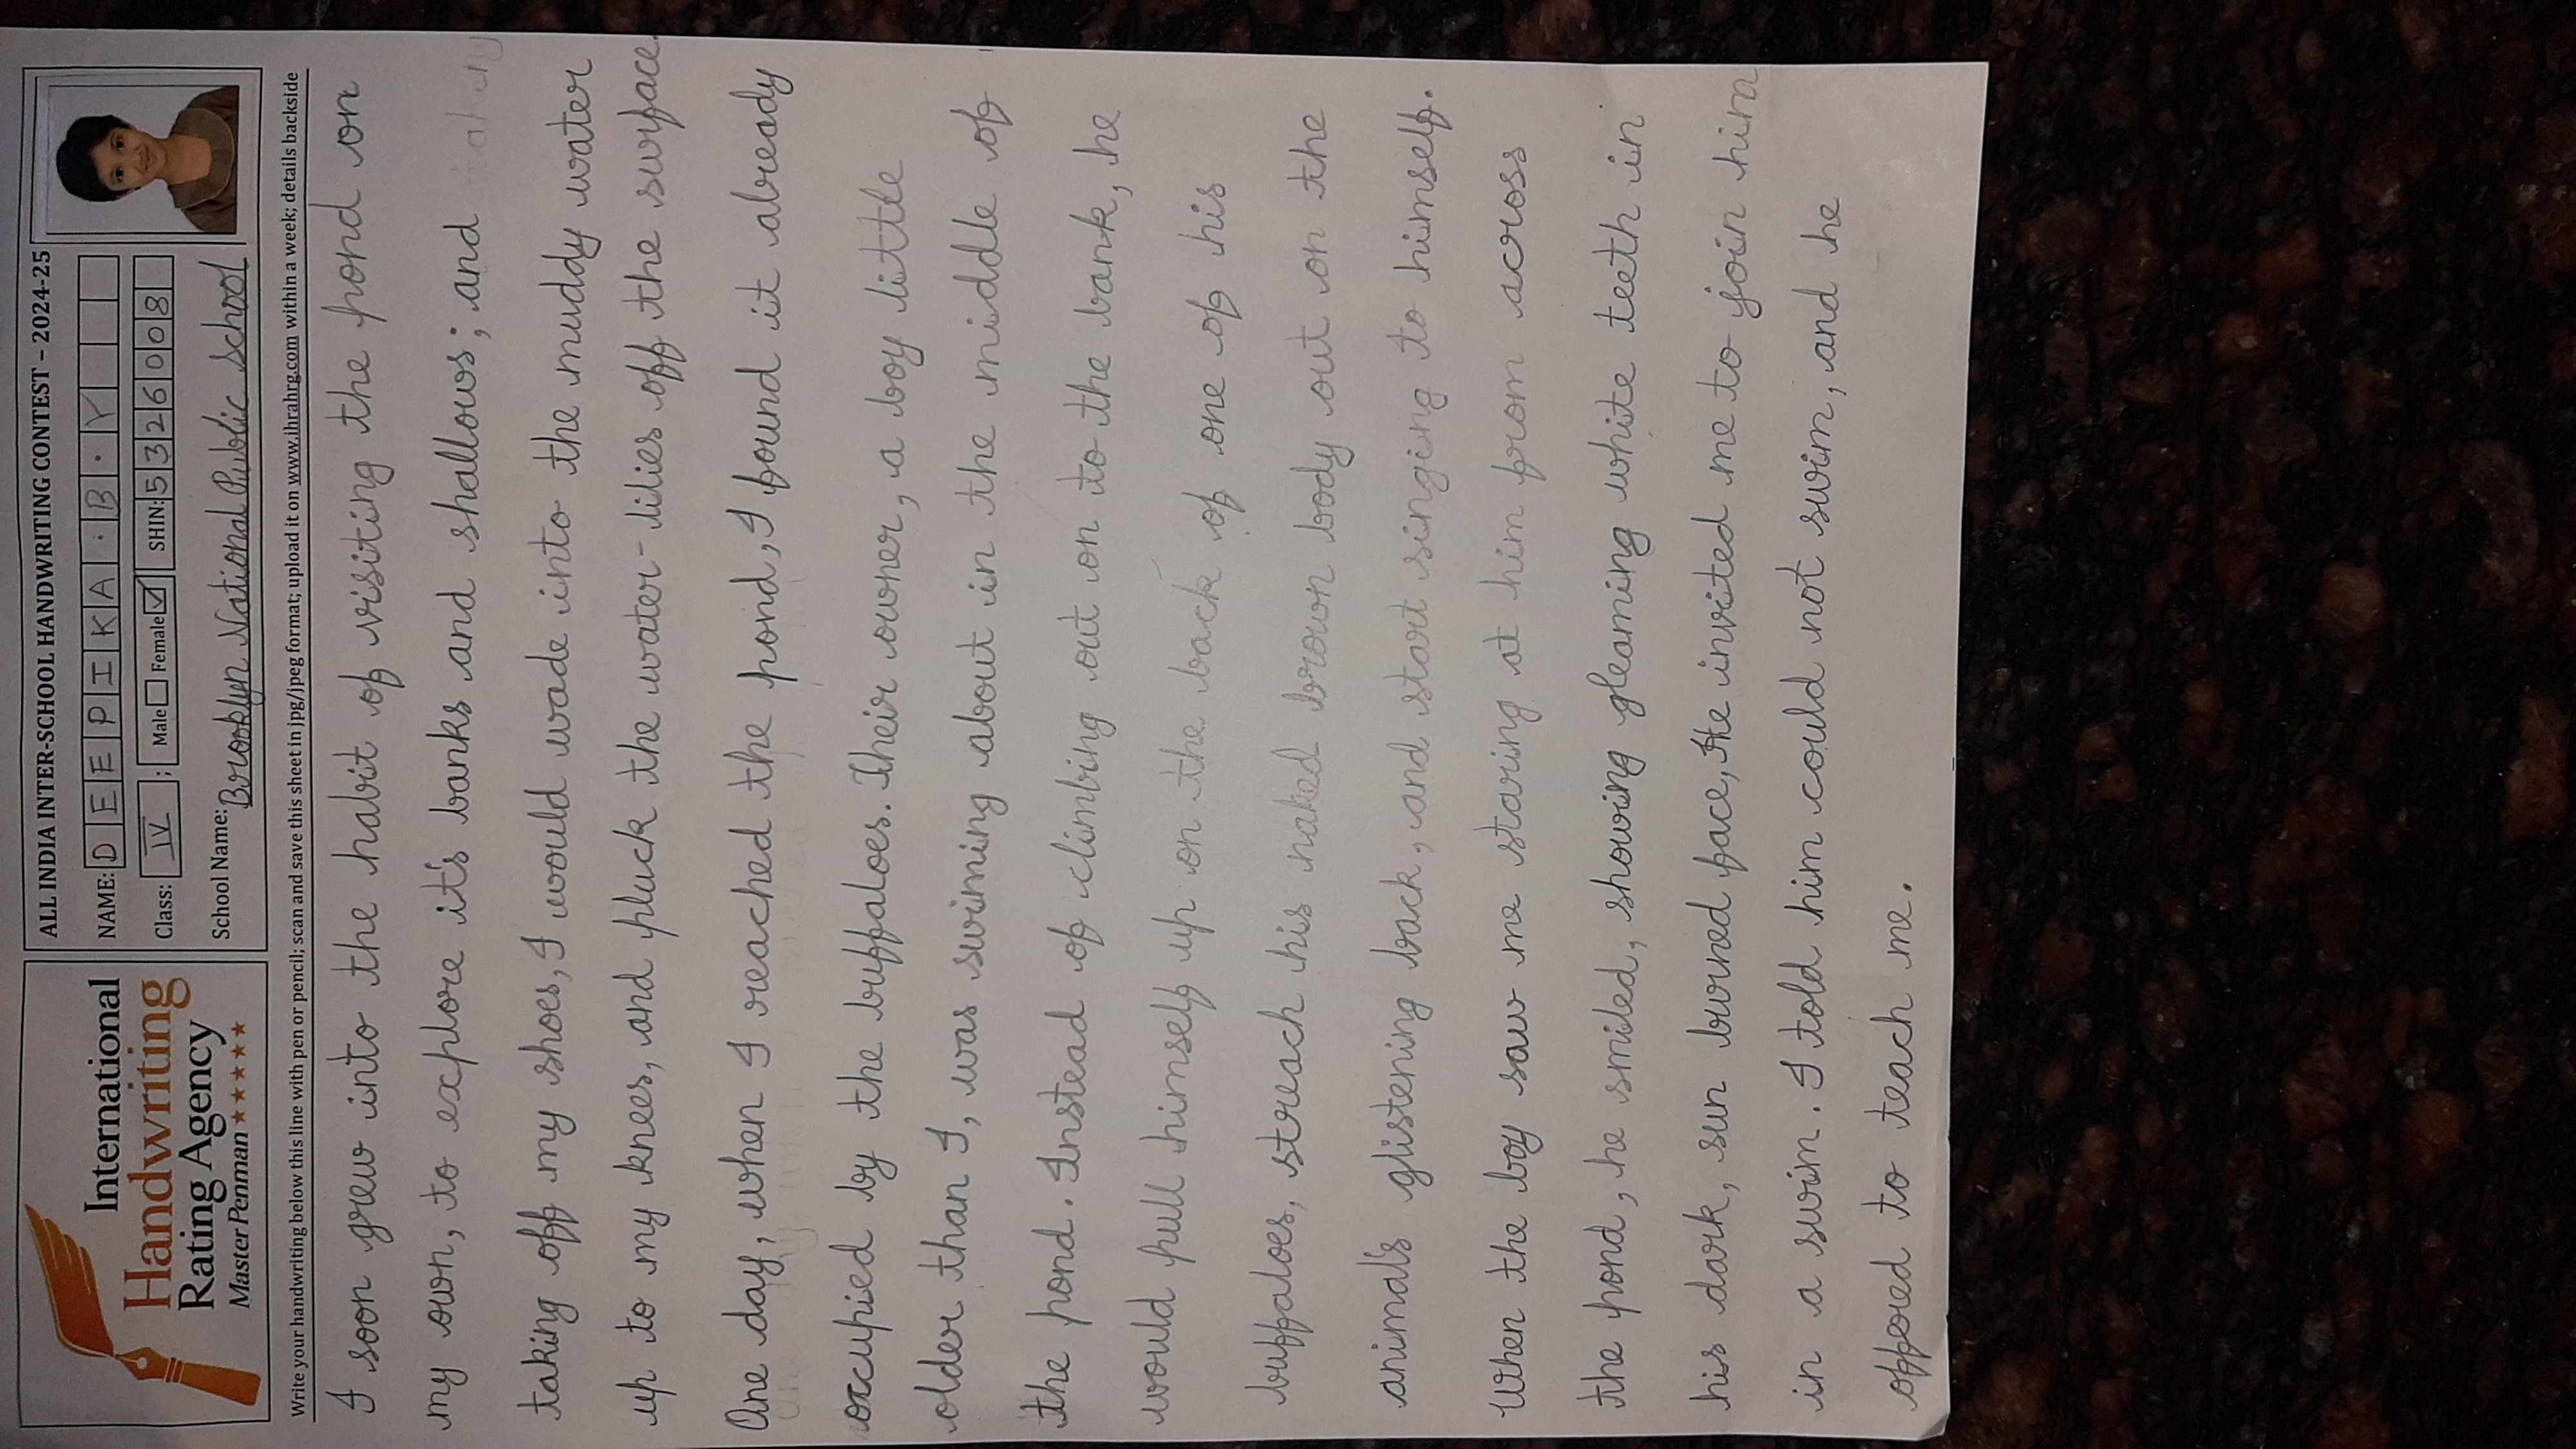 International
Handwriting
Rating Agency
Master Penman ★★★★★★
ALL INDIA INTER-SCHOOL HANDWRITING CONTEST – 2024-25
NAME: DEEPIKA.B.Y
Class: IV ; Male Female ✓ SHIN: 5326008
School Name: Brooklyn National Public School
Write your handwriting below this line with pen or pencil; scan and save this sheet in jpg/jpeg format; upload it on www.ihrahrg.com within a week; details backside
I soon grew into the habit of visiting the pond on
my own, to explore it's banks and shallows; and
taking off my shoes, I would wade into the muddy water
up to my knees, and pluck the water-lilies off the surface.
One day, when I reached the pond, I found it already
occupied by the buffaloes. Their owner, a boy little
older than I, was swiming about in the middle of
the pond. Instead of climbing out on to the bank, he
would pull himself up on the back of one of his
buffaloes, streach his naked brown body out on the
animals glistening back, and start singing to himself.
When the boy saw me staring at him from across
the pond, he smiled, showing gleaming white teeth in
his dark, sun burned face, He invited me to join him
in a swim. I told him could not swim, and he
offored to teach me.